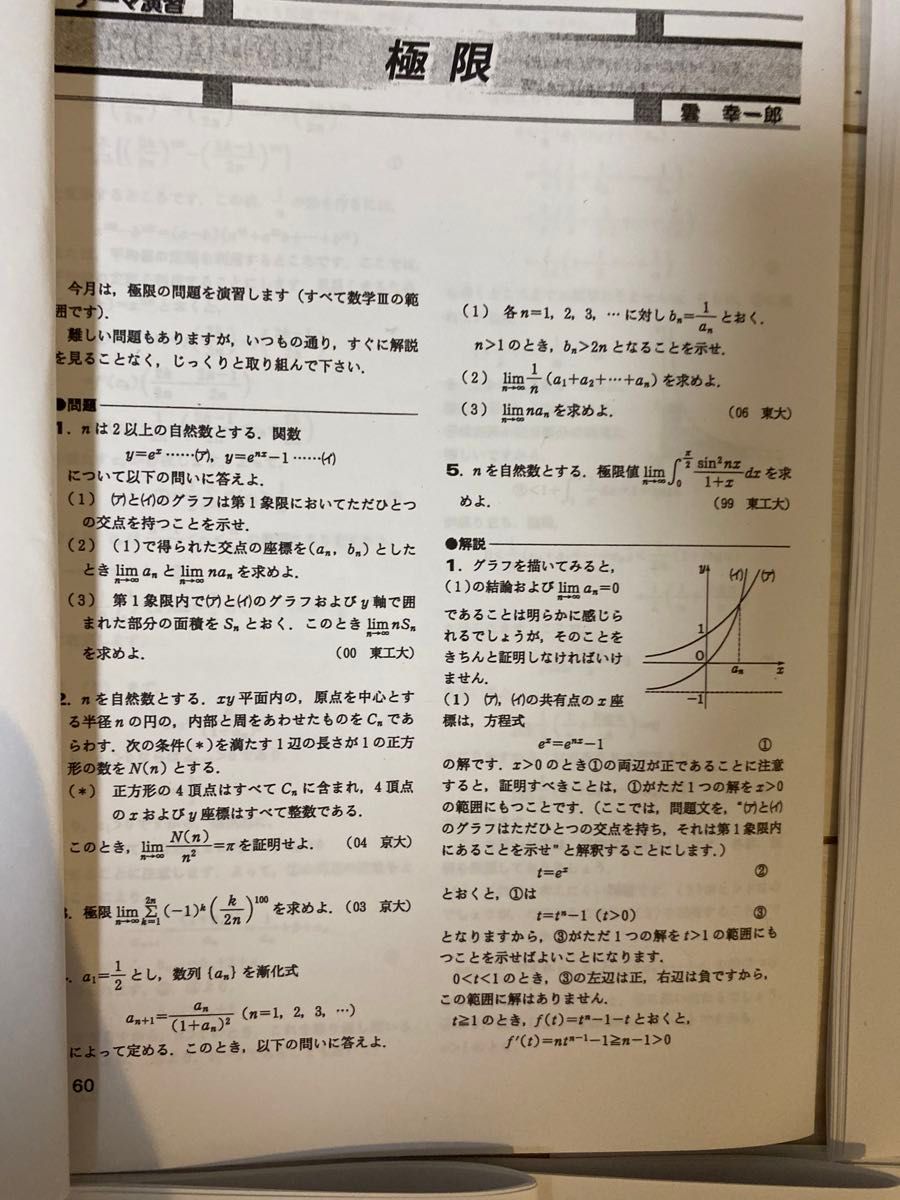 テーマ演習
極限
雲 幸一郎
今月は，極限の問題を演習します（すべて数学Ⅲの範
囲です）．
難しい問題もありますが，いつもの通り，すぐに解説
を見ることなく，じっくりと取り組んで下さい．
●問題
1．nは2以上の自然数とする．関数
y=e^x ……(ア), y=e^{nx}−1 ……(イ)
について以下の問いに答えよ．
(1) (ア)と(イ)のグラフは第1象限においてただひとつ
の交点を持つことを示せ．
(2) (1)で得られた交点の座標を(a_n, b_n)とした
とき lim_{n→∞} a_n と lim_{n→∞} na_n を求めよ．
(3) 第1象限内で(ア)と(イ)のグラフおよびy軸で囲
まれた部分の面積をS_nとおく．このとき lim_{n→∞} nS_n
を求めよ． (00 東工大)
2．nを自然数とする．xy平面内の，原点を中心とす
る半径nの円の，内部と周をあわせたものをC_nであ
らわす．次の条件(＊)を満たす1辺の長さが1の正方
形の数をN(n)とする．
(＊) 正方形の4頂点はすべてC_nに含まれ，4頂点
のxおよびy座標はすべて整数である．
このとき，lim_{n→∞} N(n)/n^2 =π を証明せよ． (04 京大)
極限 lim_{n→∞} Σ_{k=1}^{2n} (−1)^k (k/2n)^{100} を求めよ．(03 京大)
a_1=1/2 とし，数列{a_n}を漸化式
a_{n+1}=a_n/(1+a_n)^2 (n=1, 2, 3, …)
によって定める．このとき，以下の問いに答えよ．
60
(1) 各n=1, 2, 3, …に対し b_n=1/a_n とおく．
n>1のとき，b_n>2nとなることを示せ．
(2) lim_{n→∞} 1/n (a_1+a_2+…+a_n) を求めよ．
(3) lim_{n→∞} na_n を求めよ． (06 東大)
5．nを自然数とする．極限値 lim_{n→∞} ∫_0^{π/2} sin^2 nx/(1+x) dx を求
めよ． (99 東工大)
●解説
1．グラフを描いてみると，
(1)の結論および lim_{n→∞} a_n=0
であることは明らかに感じら
れるでしょうが，そのことを
きちんと証明しなければいけ
ません．
y (イ) (ア)
1
O a_n x
−1
(1) (ア), (イ)の共有点のx座
標は，方程式
e^x=e^{nx}−1 ①
の解です．x>0のとき①の両辺が正であることに注意
すると，証明すべきことは，①がただ1つの解をx>0
の範囲にもつことです．（ここでは，問題文を，“(ア)と(イ)
のグラフはただひとつの交点を持ち，それは第1象限内
にあることを示せ”と解釈することにします．）
t=e^x ②
とおくと，①は
t=t^n−1 (t>0) ③
となりますから，③がただ1つの解をt>1の範囲にも
つことを示せばよいことになります．
0<t<1のとき，③の左辺は正，右辺は負ですから，
この範囲に解はありません．
t≧1のとき，f(t)=t^n−1−tとおくと，
f′(t)=nt^{n−1}−1≧n−1>0